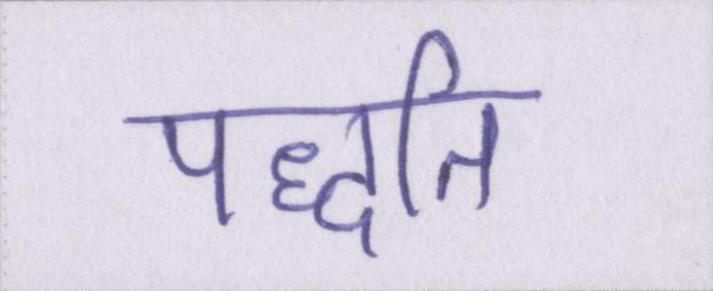 पद्धति